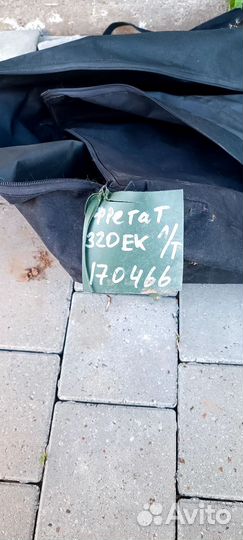 Фрегат
320ЕК л/т
170466
Avito